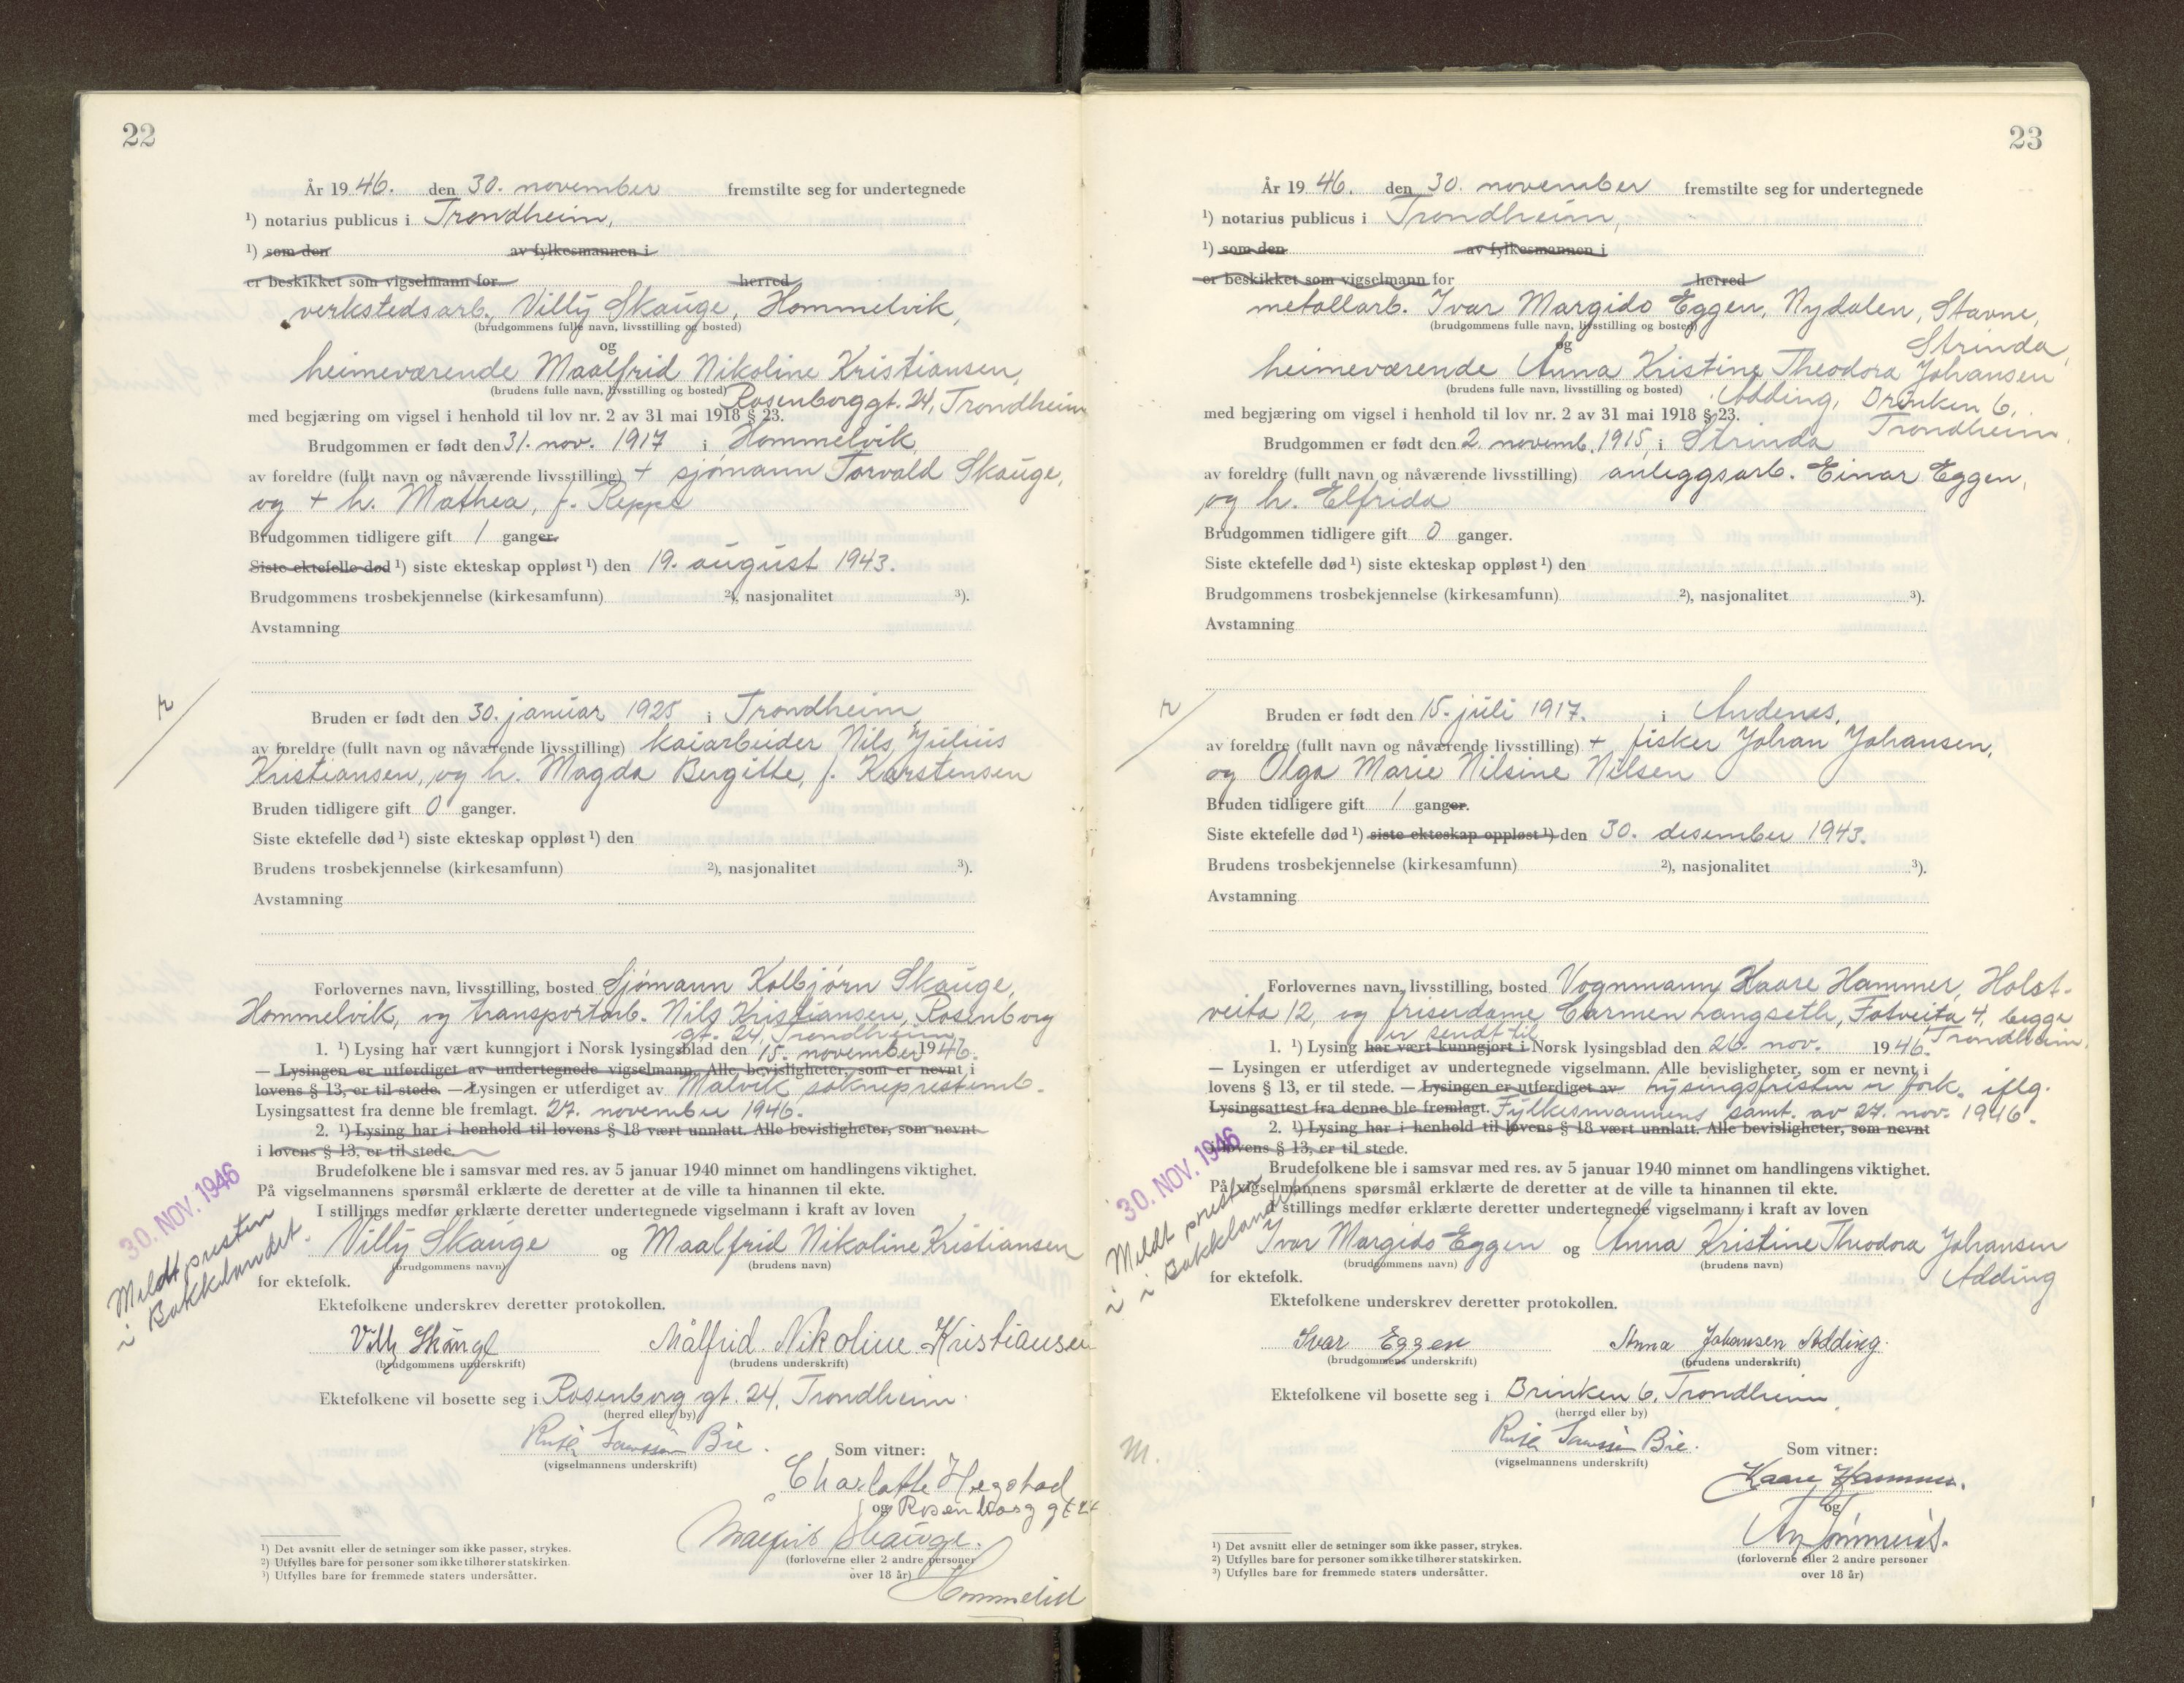 22
År 19 46. den 30. november fremstilte seg for undertegnede
¹) notarius publicus i Trondheim,
¹) som den av fylkesmannen i
er beskikket som vigselmann for herred
verkstedsarb. Villy Skauge, Hommelvik,
(brudgommens fulle navn, livsstilling og bosted)
og
heimeværende Maalfrid Nikoline Kristiansen,
(brudens fulle navn, livsstilling og bosted) Rosenborggt. 24, Trondheim
med begjæring om vigsel i henhold til lov nr. 2 av 31 mai 1918 § 23.
Brudgommen er født den 31. nov. 1917 i Hommelvik,
av foreldre (fullt navn og nåværende livsstilling) + sjømann Torvald Skauge,
og + h. Mathea, f. Reppe
Brudgommen tidligere gift 1 ganger.
Siste ektefelle død ¹) siste ekteskap oppløst ¹) den 19. august 1943.
Brudgommens trosbekjennelse (kirkesamfunn) ²), nasjonalitet ³).
Avstamning
Bruden er født den 30. januar 1925 i Trondheim,
av foreldre (fullt navn og nåværende livsstilling) kaiarbeider Nils Julius
Kristiansen, og h. Magda Bergitte, f. Karstensen
Bruden tidligere gift 0 ganger.
Siste ektefelle død ¹) siste ekteskap oppløst ¹) den
Brudens trosbekjennelse (kirkesamfunn) ²), nasjonalitet ³).
Avstamning
Forlovernes navn, livsstilling, bosted Sjømann Kolbjørn Skauge,
Hommelvik, og transportarb. Nils Kristiansen, Rosenborg
gt. 24, Trondheim
1. ¹) Lysing har vært kunngjort i Norsk lysingsblad den 15. november 1946.
— Lysingen er utferdiget av undertegnede vigselmann. Alle bevisligheter, som er nevnt i
lovens § 13, er til stede. — Lysingen er utferdiget av Malvik sokneprestemb.
Lysingsattest fra denne ble fremlagt. 27. november 1946.
2. ¹) Lysing har i henhold til lovens § 18 vært unnlatt. Alle bevisligheter, som nevnt
i lovens § 13, er til stede.
Brudefolkene ble i samsvar med res. av 5 januar 1940 minnet om handlingens viktighet.
På vigselmannens spørsmål erklærte de deretter at de ville ta hinannen til ekte.
I stillings medfør erklærte deretter undertegnede vigselmann i kraft av loven
30. NOV. 1946
Meldt presten
i Bakklandet.
Villy Skauge og Maalfrid Nikoline Kristiansen
(brudgommens navn) (brudens navn)
for ektefolk.
Ektefolkene underskrev deretter protokollen.
Villy Skaugl Målfrid Nikoline Kristiansen
(brudgommens underskrift) (brudens underskrift)
Ektefolkene vil bosette seg i Rosenborg gt. 24, Trondheim.
(herred eller by)
Bie.
(vigselmannens underskrift)
Som vitner:
Charlotte Hegstad
og Rosenborg gt 24
Skauge.
(forloverne eller 2 andre personer
over 18 år)
¹) Det avsnitt eller de setninger som ikke passer, strykes.
²) Utfylles bare for personer som ikke tilhører statskirken.
³) Utfylles bare for fremmede staters undersåtter.
23
År 19 46. den 30. november fremstilte seg for undertegnede
¹) notarius publicus i Trondheim,
¹) som den av fylkesmannen i
er beskikket som vigselmann for herred
metallarb. Ivar Margido Eggen, Nydalen, Stavne,
(brudgommens fulle navn, livsstilling og bosted) Strinda,
og
heimeværende Anna Kristine Theodora Johansen
(brudens fulle navn, livsstilling og bosted) Adding, Brinken 6,
med begjæring om vigsel i henhold til lov nr. 2 av 31 mai 1918 § 23. Trondheim.
Brudgommen er født den 2. novemb. 1915, i Strinda
av foreldre (fullt navn og nåværende livsstilling) anleggsarb. Einar Eggen,
og h. Elfrida
Brudgommen tidligere gift 0 ganger.
Siste ektefelle død ¹) siste ekteskap oppløst ¹) den
Brudgommens trosbekjennelse (kirkesamfunn) ²), nasjonalitet ³).
Avstamning
Bruden er født den 15. juli 1917. i Andenes,
av foreldre (fullt navn og nåværende livsstilling) + fisker Johan Johansen,
og Olga Marie Nilsine Nilsen
Bruden tidligere gift 1 ganger.
Siste ektefelle død ¹) siste ekteskap oppløst ¹) den 30. desember 1943.
Brudens trosbekjennelse (kirkesamfunn) ²), nasjonalitet ³).
Avstamning
Forlovernes navn, livsstilling, bosted Vognmann Kaare Hammer, Holst-
veita 12, og friserdame Carmen Langseth, Fotveita 4, begge
er sendt til Trondheim.
1. ¹) Lysing har vært kunngjort i Norsk lysingsblad den 26. nov. 1946.
— Lysingen er utferdiget av undertegnede vigselmann. Alle bevisligheter, som er nevnt i
lovens § 13, er til stede. — Lysingen er utferdiget av Lysingsfristen er fork. iflg.
Lysingsattest fra denne ble fremlagt. Fylkesmannens samt. av 27. nov. 1946.
2. ¹) Lysing har i henhold til lovens § 18 vært unnlatt. Alle bevisligheter, som nevnt
i lovens § 13, er til stede.
Brudefolkene ble i samsvar med res. av 5 januar 1940 minnet om handlingens viktighet.
På vigselmannens spørsmål erklærte de deretter at de ville ta hinannen til ekte.
I stillings medfør erklærte deretter undertegnede vigselmann i kraft av loven
30. NOV. 1946
Meldt presten
i Bakklandet
Ivar Margido Eggen og Anna Kristine Theodora Johansen
(brudgommens navn) (brudens navn)
for ektefolk. Adding
Ektefolkene underskrev deretter protokollen.
Ivar Eggen Anna Johansen Adding.
(brudgommens underskrift) (brudens underskrift)
Ektefolkene vil bosette seg i Brinken 6, Trondheim,
(herred eller by)
Bie.
(vigselmannens underskrift)
M.
Som vitner:
Kaare Hammer.
og
(forloverne eller 2 andre personer
over 18 år)
¹) Det avsnitt eller de setninger som ikke passer, strykes.
²) Utfylles bare for personer som ikke tilhører statskirken.
³) Utfylles bare for fremmede staters undersåtter.